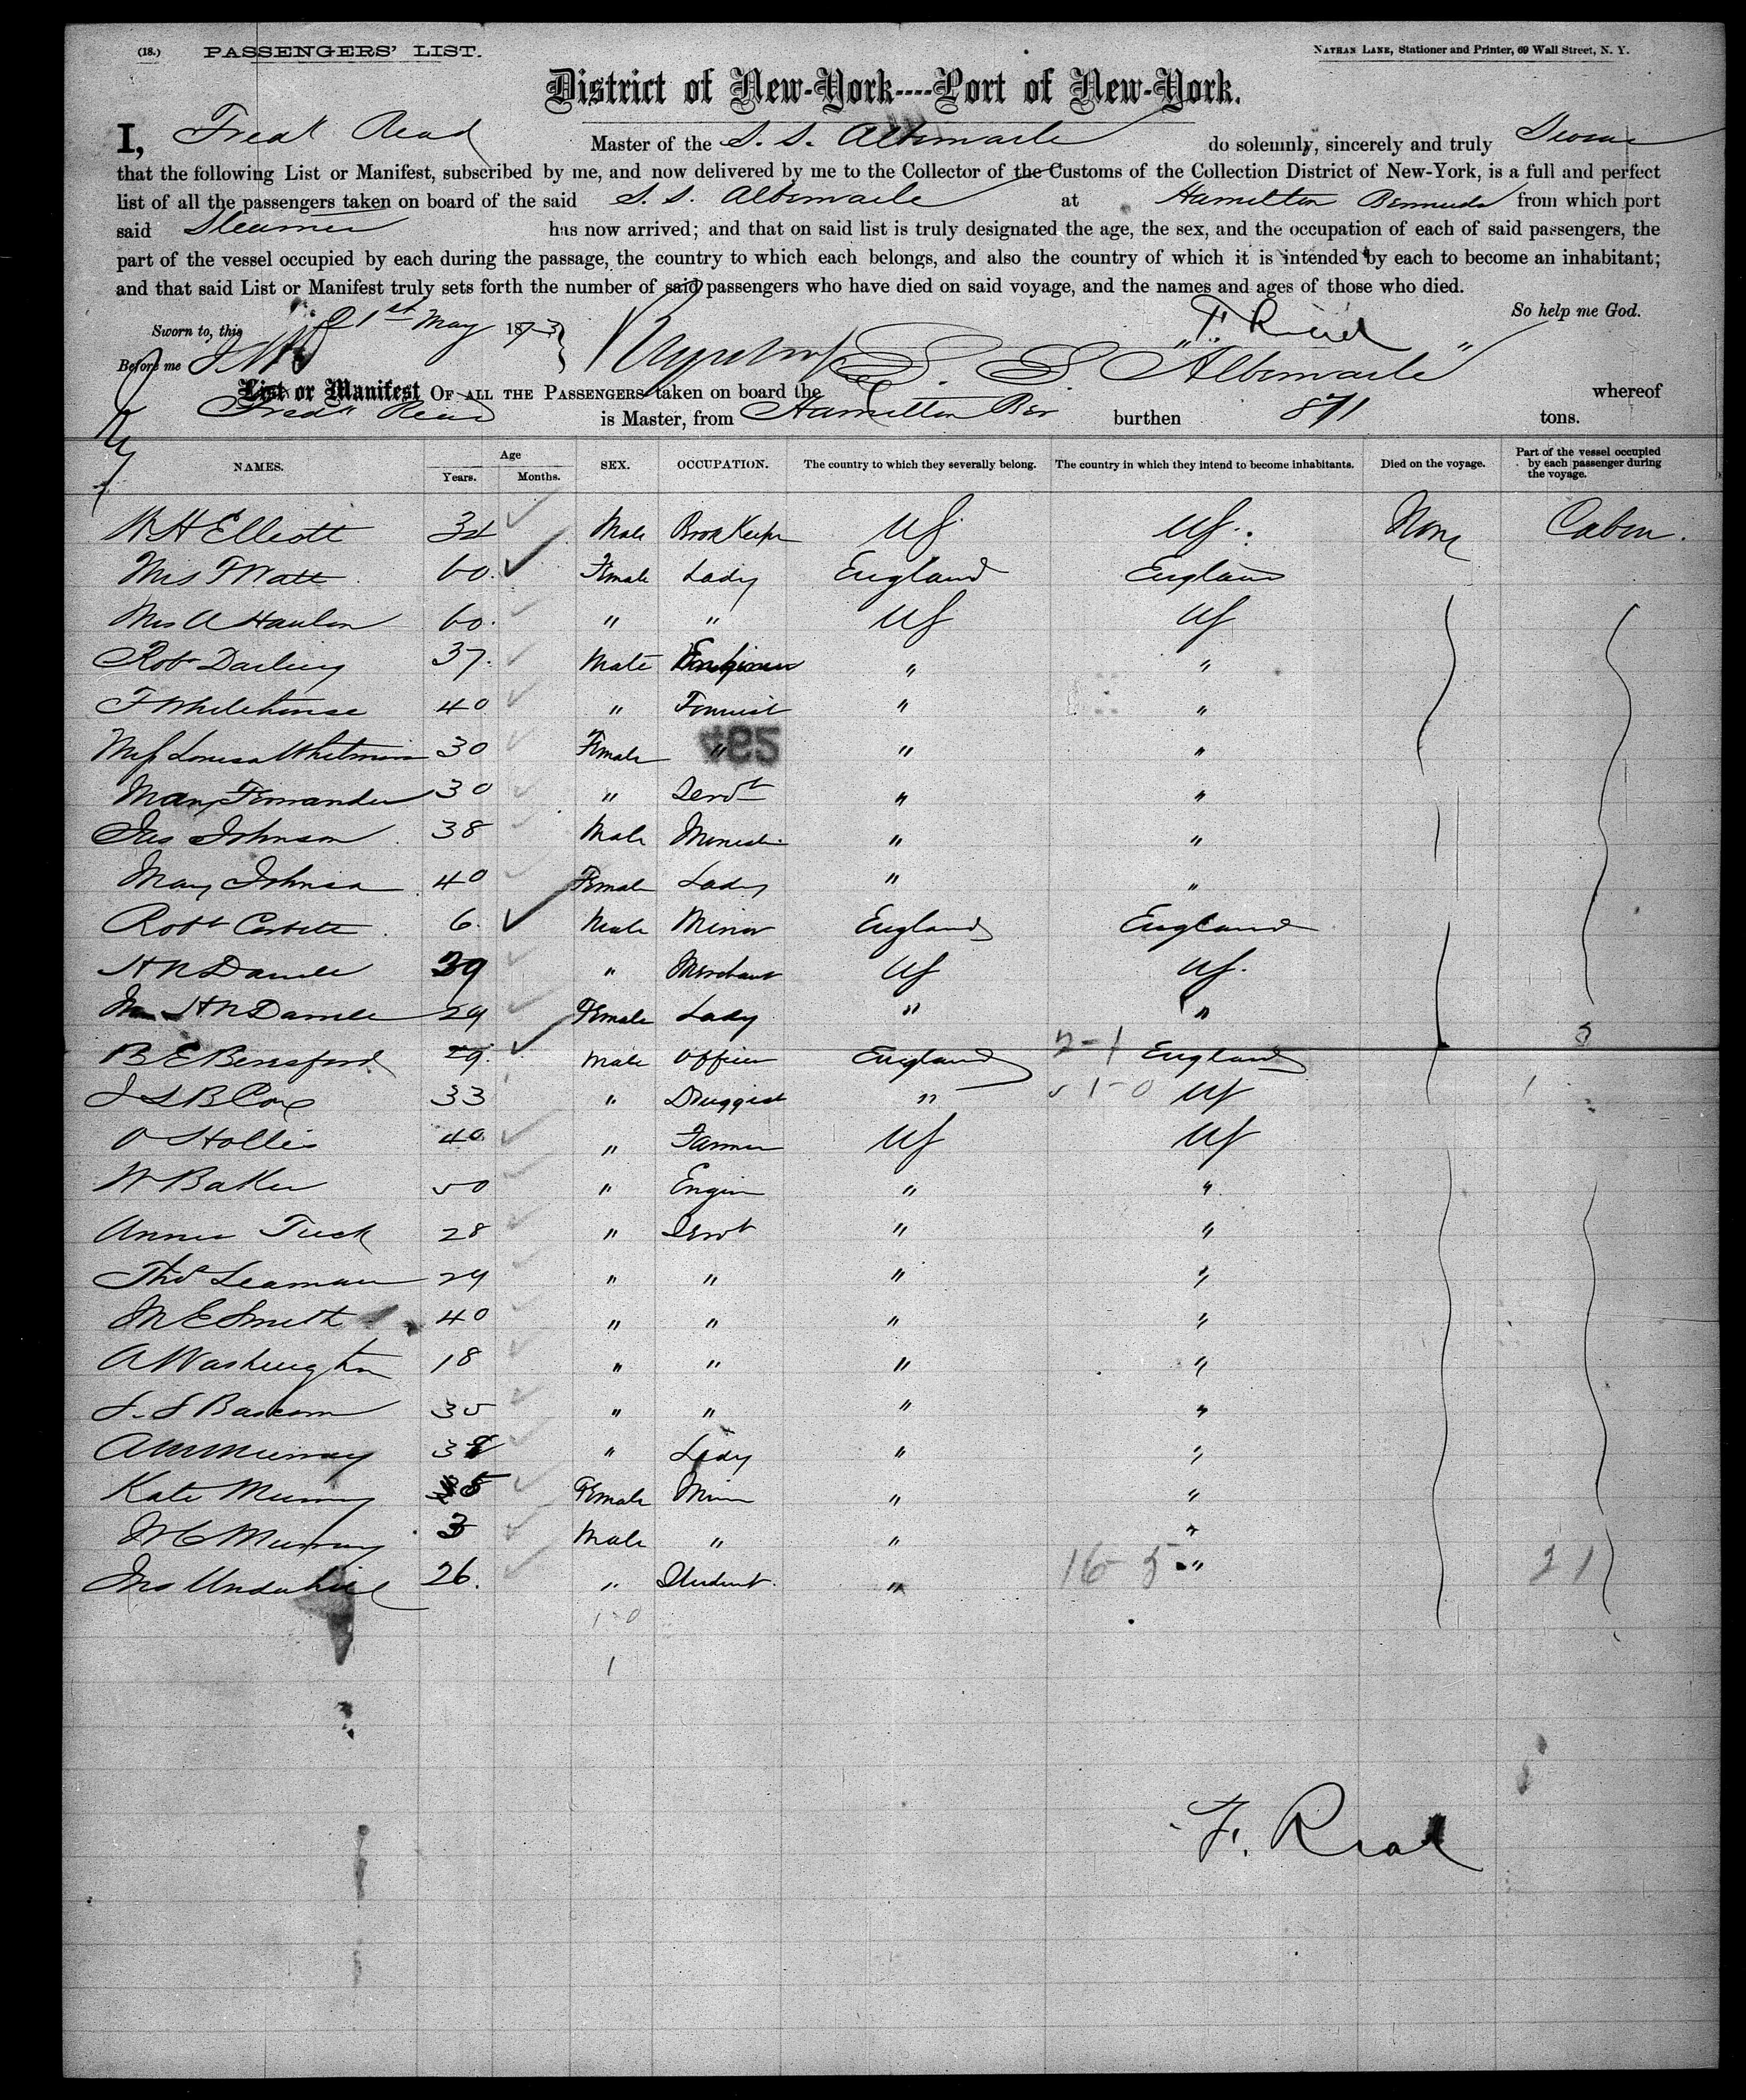 (18.) PASSENGERS' LIST. NATHAN LANE, Stationer and Printer, 69 Wall Street, N. Y.
District of New-York----Port of New-York.
I, Fredk Read Master of the S. S. Albemarle do solemnly, sincerely and truly Swear
that the following List or Manifest, subscribed by me, and now delivered by me to the Collector of the Customs of the Collection District of New-York, is a full and perfect
list of all the passengers taken on board of the said S. S. Albemarle at Hamilton Bermuda from which port
said Steamer has now arrived; and that on said list is truly designated the age, the sex, and the occupation of each of said passengers, the
part of the vessel occupied by each during the passage, the country to which each belongs, and also the country of which it is intended by each to become an inhabitant;
and that said List or Manifest truly sets forth the number of said passengers who have died on said voyage, and the names and ages of those who died.
So help me God.
Sworn to, this 21st May 1873 F. Read
Before me
List or Manifest OF ALL THE PASSENGERS taken on board the S. S. "Albemarle" whereof
Fredk Read is Master, from Hamilton Ber burthen 871 tons.
NAMES. Age Years. Months. SEX. OCCUPATION. The country to which they severally belong. The country in which they intend to become inhabitants. Died on the voyage. Part of the vessel occupied by each passenger during the voyage.
W H Elliott Male Book Keeper US US. None Cabin.
Mrs T Watt 60. Female Lady England England
Mrs A Hanlon 60. " " US US
Robt Darling 37. Male " "
F Whitehouse 40 " " "
Miss Louisa Whitmore 30 Female " " "
Mary Fernandes 30 " Servt " "
Jas Johnson 38 Male " "
Mary Johnson 40 Female Lady " "
Robt Corbett 6. Male Minor England England
H N Darrell 39 " Merchant US US.
H N Darrell 29 Female Lady " "
B E Beresford 29. Male Officer England 2-1 England
J L B Cox 33 " Druggist " 1-0 US 1
O Hollis 40 " Farmer US US
W Baker 50 " Engin " "
Annie Tuck 28 " Servt " "
Thos Leaman 29 " " " "
M E Smith 40 " " " "
A Washington 18 " " " "
J. S Bascom 35 " " " "
A M Murray 38 " Lady " "
Kate Murray 5 Female Minor " "
W C Murray 3 Male " " "
Jno Underhill 26. " Student. " 16-5 " 21
1-0
1
F. Read